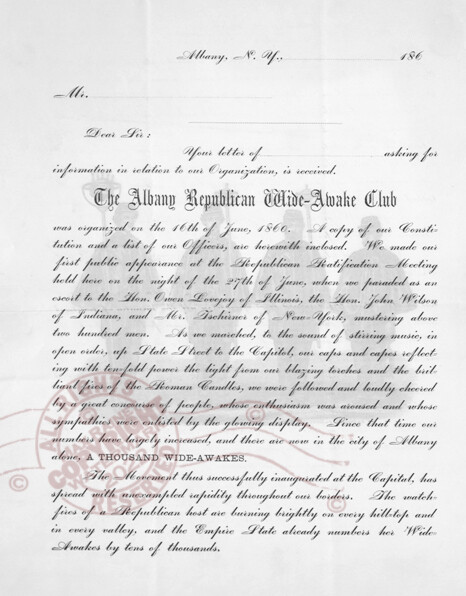 Albany, N. Y., 186
Mr.
Dear Sir:
Your letter of asking for
information in relation to our Organization, is received.
The Albany Republican Wide-Awake Club
was organized on the 16th of June, 1860. A copy of our Consti-
tution and a list of our Officers, are herewith inclosed. We made our
first public appearance at the Republican Ratification Meeting
held here on the night of the 27th of June, when we paraded as an
escort to the Hon. Owen Lovejoy of Illinois, the Hon. John Wilson
of Indiana, and Mr. Tschirner of New-York, mustering above
two hundred men. As we marched, to the sound of stirring music, in
open order, up State Street to the Capitol, our caps and capes reflect-
ing with ten-fold power the light from our blazing torches and the bril-
liant fires of the Roman Candles, we were followed and loudly cheered
by a great concourse of people, whose enthusiasm was aroused and whose
sympathies were enlisted by the glowing display. Since that time our
numbers have largely increased, and there are now in the city of Albany
alone, A THOUSAND WIDE-AWAKES.
The Movement thus successfully inaugurated at the Capital, has
spread with unexampled rapidity throughout our borders. The watch-
fires of a Republican host are burning brightly on every hilltop and
in every valley, and the Empire State already numbers her Wide-
Awakes by tens of thousands.